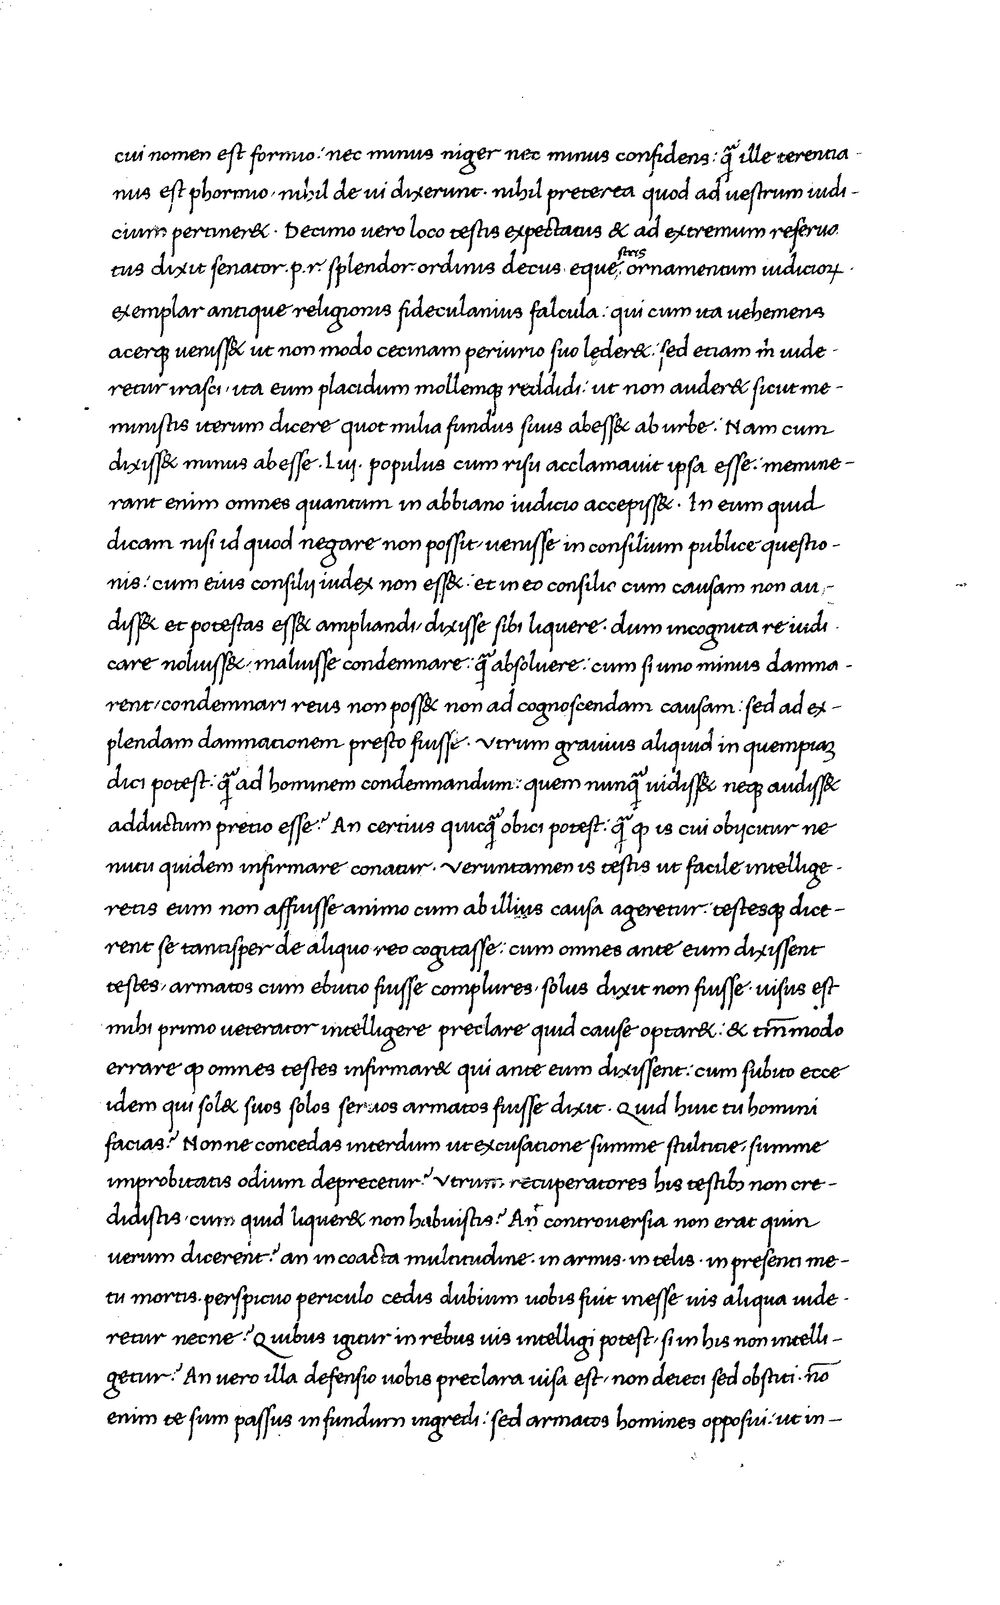 cui nomen est formio: nec minus niger nec minus confidens: q̃ ille terentia-
nus est phormio, nihil de ui dixerunt. nihil preterea quod ad uestrum iudi-
cium pertiner&. Decimo uero loco testis expectatus & ad extremum reserua
tus dixit senator. p. r. splendor. ordinis decus eque, ornamentum iudicioꝝ.
exemplar antique religionis fideculanius falcula: qui cum ita uehemens
acerq; uenisset ut non modo cecinam periurio suo lęder&: sed etiam m̃ uide-
retur irasci, ita eum placidum mollemq; reddidi: ut non auder& sicut me-
ministis iterum dicere quot milia fundus suus abess& ab urbe: Nam cum
dixiss& minus abesse. Liij. populus cum risu acclamauit ipsa esse: memine-
rant enim omnes quantum in abbiano iudicio accepiss&. In eum quid
dicam nisi id quod negare non possit, uenisse in consilium publice questio-
nis: cum eius consilij iudex non ess&. et in eo consilio cum causam non au-
diss& et potestas ess& ampliandi, dixisse sibi liquere. dum incognita re iudi
care noluiss&, maluisse condemnare: q̃ absoluere: cum si uno minus damna-
rent, condemnari reus non poss& non ad cognoscendam causam: sed ad ex-
plendam damnationem presto fuisse. Vtrum grauius aliquid in quempiaꝫ
dici potest: q̃ ad hominem condemnandum: quem nunq̃ uidiss& neq; audiss&
adductum pretio esse? An certius quicq̃ obici potest: q̃ ꝙ is cui obijcitur ne
nutu quidem infirmare conatur. Veruntamen is testis ut facile intellige-
retis eum non affuisse animo cum ab illius causa ageretur: testesq; dice-
rent se tantisper de aliquo reo cogitasse: cum omnes ante eum dixissent
testes, armatos cum ebutio fuisse complures, solus dixit non fuisse. uisus est
mihi primo ueterator intelligere preclare quid cause optar&: & tm̃modo
errare ꝙ omnes testes infirmar& qui ante eum dixissent: cum subito ecce
idem qui sol& suos solos seruos armatos fuisse dixit. Quid huic tu homini
facias? Nonne concedas interdum ut excusatione summe stultitie, summe
improbitatis odium deprecetur? Vtrum recuperatores his testibꝫ non cre-
didistis, cum quid liquer& non habuistis? An controuersia non erat quin
uerum dicerent? an in coacta multitudine. in armis. in telis. in presenti me-
tu mortis. perspicuo periculo cedis dubium uobis fuit inesse uis aliqua uide-
retur necne? Quibus igitur in rebus uis intelligi potest, si in his non intelli-
getur? An uero illa defensio uobis preclara uisa est, non deieci sed obstiti. nõ
enim te sum passus in fundum ingredi: sed armatos homines opposui: ut in-